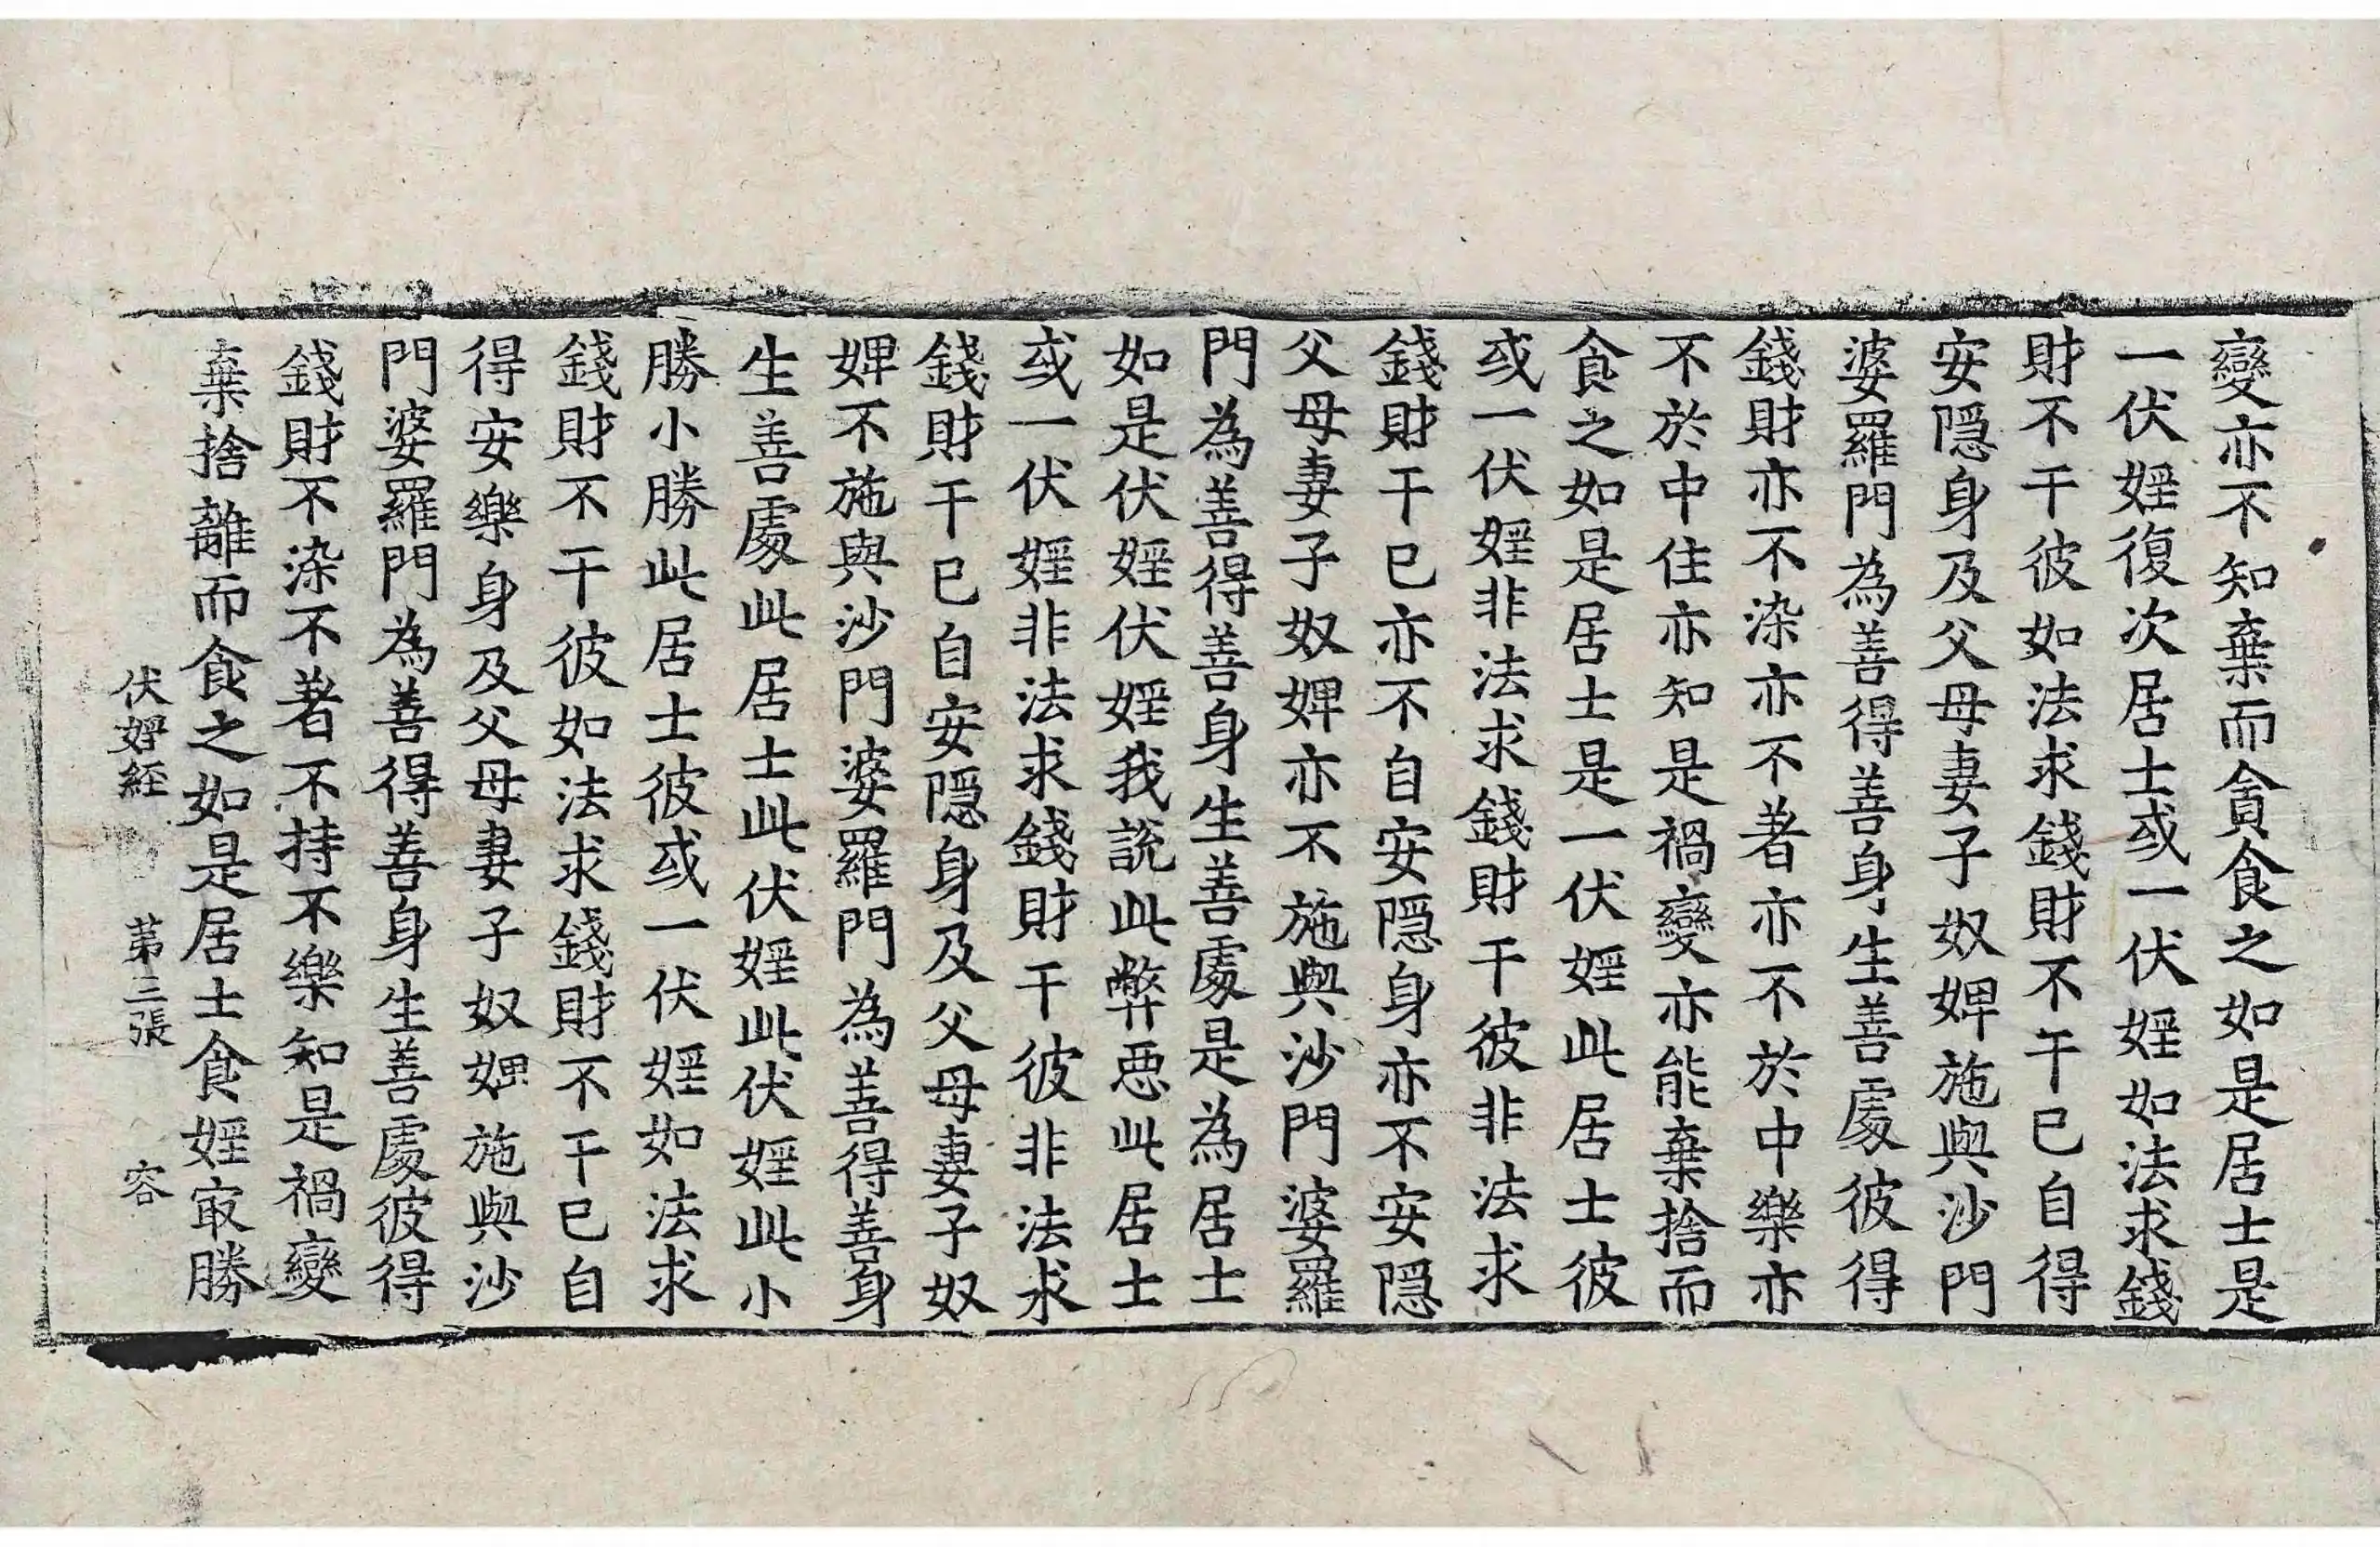 變亦不知棄而貪食之如是居士是
一伏婬復次居士或一伏婬如法求錢
財不干彼如法求錢財不干已自得
安隱身及父母妻子奴婢施與沙門
婆羅門為善得善身生善處彼得
錢財亦不染亦不著亦不於中樂亦
不於中住亦知是禍變亦能棄捨而
食之如是居士是一伏婬此居士彼
或一伏婬非法求錢財干彼非法求
錢財干已亦不自安隱身亦不安隱
父母妻子奴婢亦不施與沙門婆羅
門為善得善身生善處是為居士
如是伏婬伏婬我說此弊惡此居士
或一伏婬非法求錢財干彼非法求
錢財干已自安隱身及父母妻子奴
婢不施與沙門婆羅門為善得善身
生善處此居士此伏婬此伏婬此小
勝小勝此居士彼或一伏婬如法求
錢財不干彼如法求錢財不干已自
得安樂身及父母妻子奴婢施與沙
門婆羅門為善得善身生善處彼得
錢財不染不著不持不樂知是禍變
棄捨離而食之如是居士食婬㝡勝
伏婬經 第三張 容